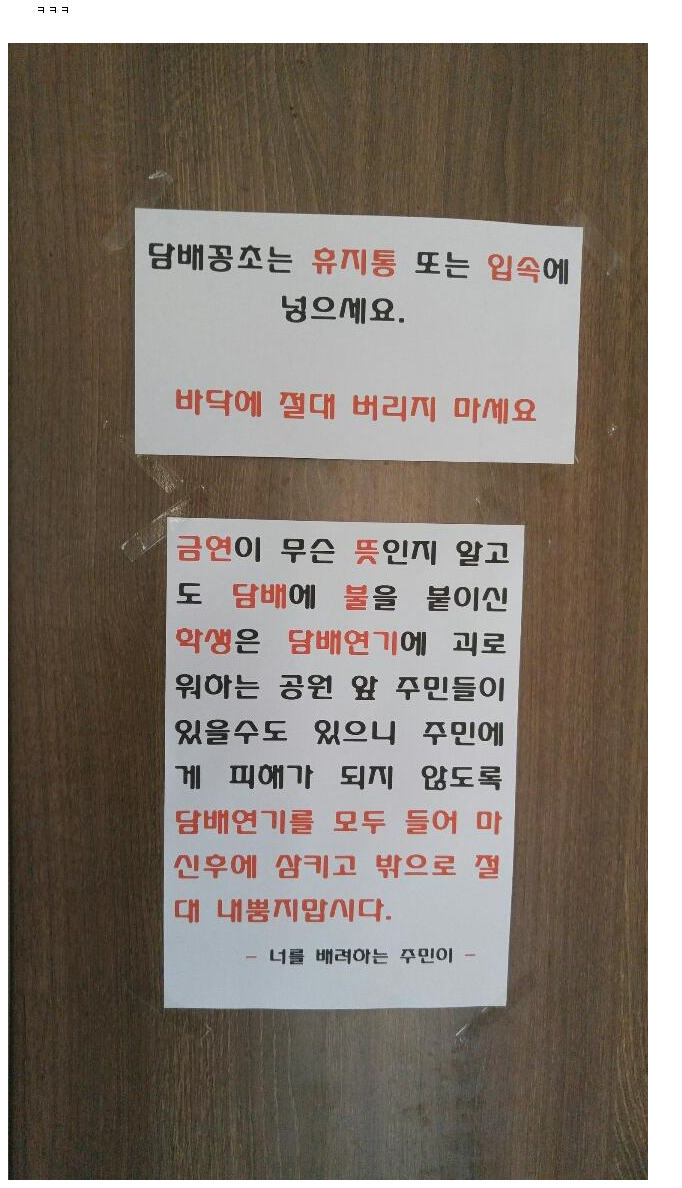 ㅋㅋㅋ
담배꽁초는 휴지통 또는 입속에
넣으세요.
바닥에 절대 버리지 마세요
금연이 무슨 뜻인지 알고
도 담배에 불을 붙이신
학생은 담배연기에 괴로
워하는 공원 앞 주민들이
있을수도 있으니 주민에
게 피해가 되지 않도록
담배연기를 모두 들여 마
신후에 삼키고 밖으로 절
대 내뿜지맙시다.
- 너를 배려하는 주민이 -